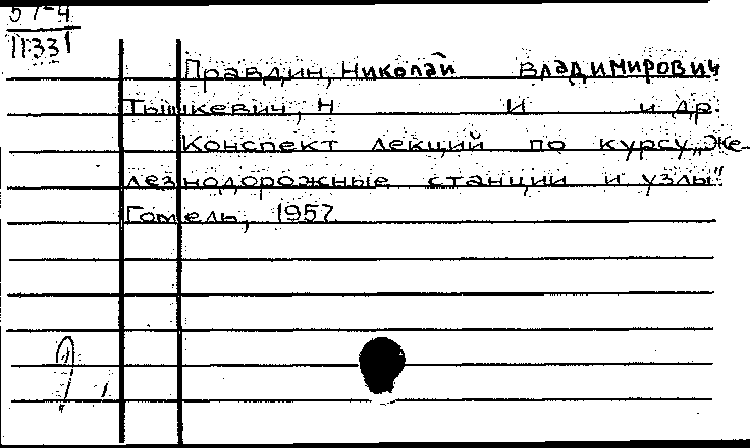 57-4
11331
Правдин, Николай Владимирович
Тышкевич, Н И и др.
Конспект лекций по курсу „Же-
лезнодорожные станции и узлы".
Гомель, 1957